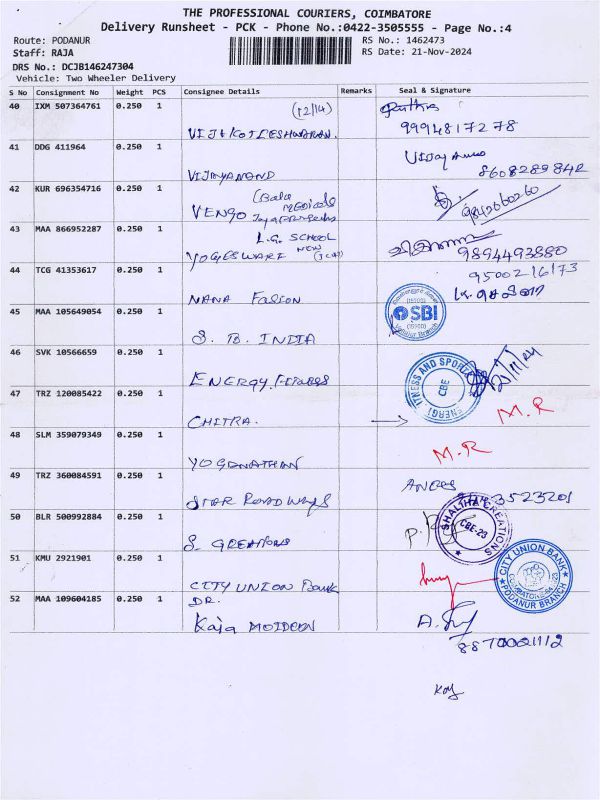 THE PROFESSIONAL COURIERS, COIMBATORE
Delivery Runsheet - PCK - Phone No.:0422-3505555 - Page No.:4
Route: PODANUR
RS No.: 1462473
Staff: RAJA
RS Date: 21-Nov-2024
DRS No.: DCJB146247304
Vehicle: Two Wheeler Delivery
S No Consignment No Weight PCS Consignee Details Remarks Seal & Signature
40 IXM 507364761 0.250 1
(12/14)
VIJ KOTEESHWARAN.
9994817278
41 DDG 411964 0.250 1
VIJAYANAND
Vijay
8608289842
42 KUR 696354716 0.250 1
VENGO
9842060260
43 MAA 866952287 0.250 1
L.G. SCHOOL
NEW
YOGESWARI
9894493880
44 TCG 41353617 0.250 1
9500216173
NANA Fasion
45 MAA 105649054 0.250 1
S. B. INDIA
SBI
(15900)
46 SVK 10566659 0.250 1
ENERGY Fitness
FITNESS AND SPORTS
CBE
ENERGI
47 TRZ 120085422 0.250 1
CHITRA.
M.R
48 SLM 359079349 0.250 1
YOGANATHAN
M.R
49 TRZ 360084591 0.250 1
STAR ROADWAYS
3523201
50 BLR 500992884 0.250 1
S. CREATIONS
SHALIHA CREATIONS
CBE-23
51 KMU 2921901 0.250 1
CITY UNION Bank
CITY UNION BANK
PODANUR BRANCH
52 MAA 109604185 0.250 1
DR.
Kaja MOIDEEN